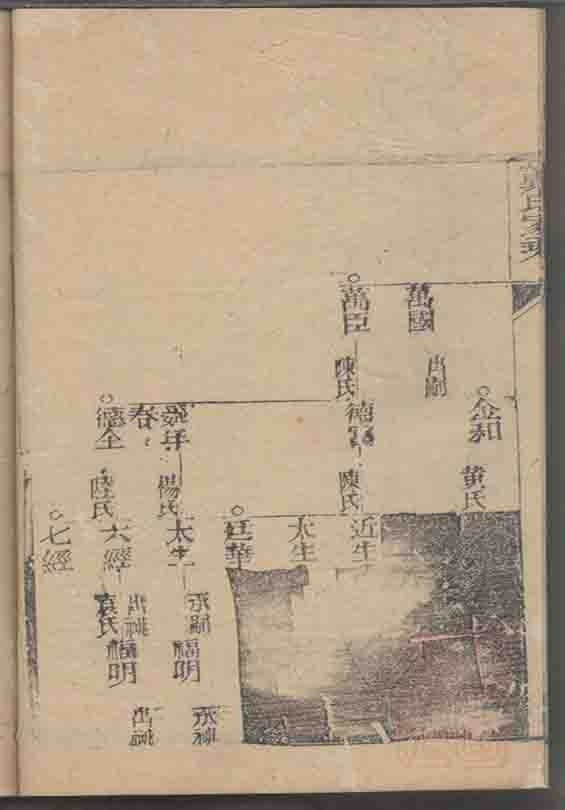 氏家乘
金和
黄氏
萬國
出嗣
萬臣
陳氏
德
陳氏
近生
太生
廷華
年
楊氏
太生
承嗣
福明
承祧
春
德全
陸氏
六經
出祧
袁氏
福明
出祧
七經